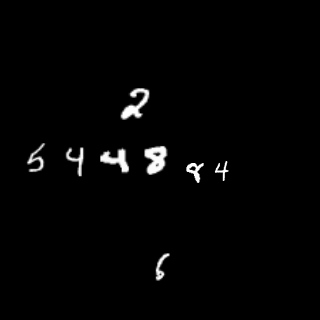 2
5 4 4 8 8 4
6